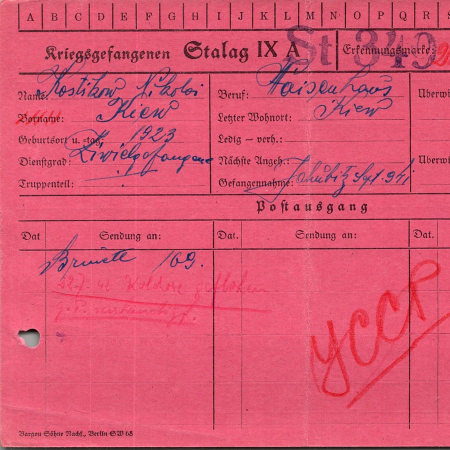 A B C D E F G H I J K L M N O P Q R S
Kriegsgefangenen Stalag IX A
St 349
Erkennungsmarke
Name: Kostikow Nikolai
Vorname: Kiew
Geburtsort u. -tag: 1923
Dienstgrad: Zivielgefangene
Truppenteil:
Beruf: Waisenhaus
Letzter Wohnort: Kiew
Ledig - verh.:
Nächste Angeh.:
Gefangennahme:
Überwi
Überwi
Postausgang
Dat
Sendung an:
Dat.
Sendung an:
Dat.
169.
geflohen
УССР
Bargou Söhne Nachf., Berlin-SW 68